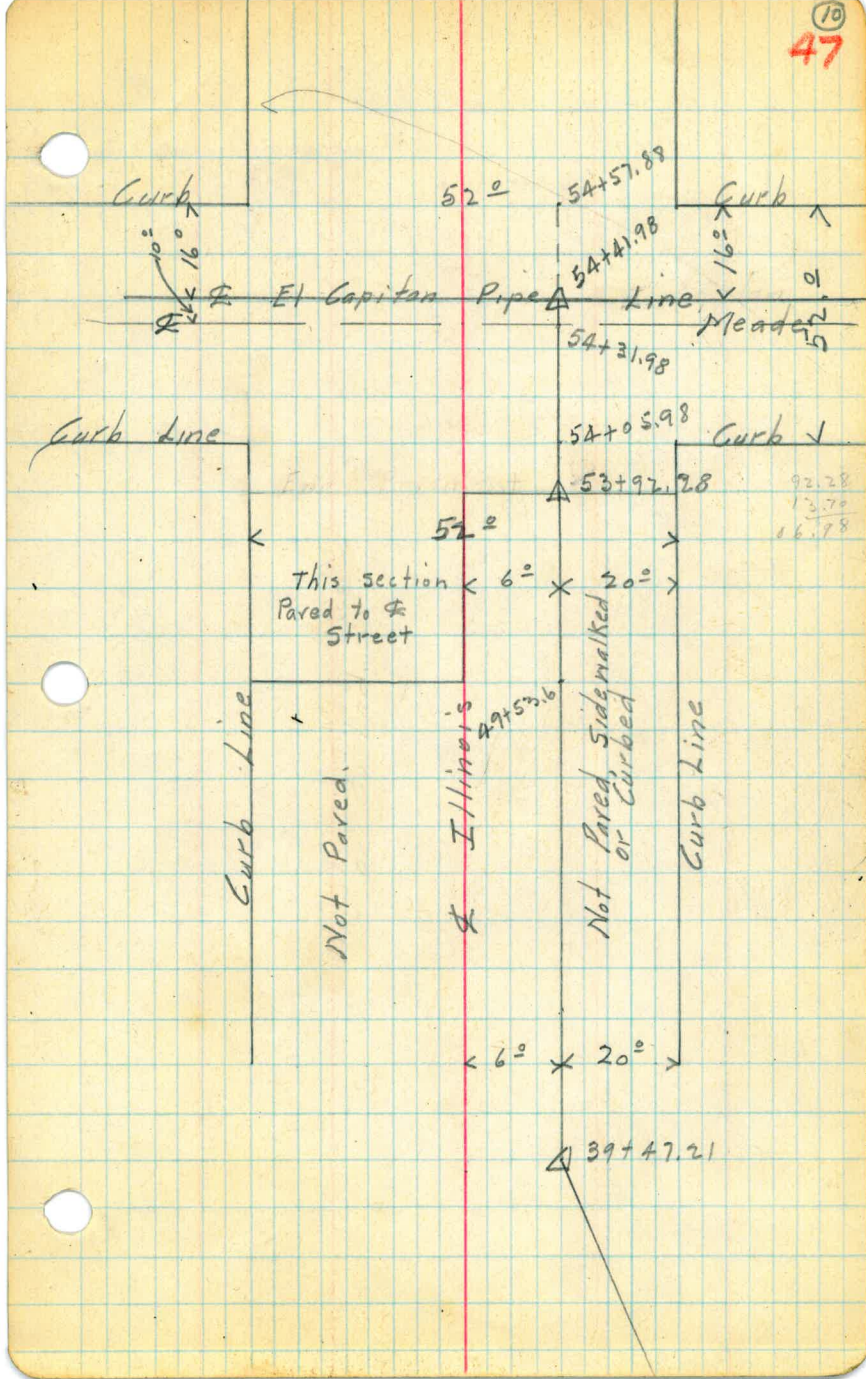 10
47
Curb 52º 54+57.88 Curb
10º
16º
54+41.98
16º
52.0
℄ El Capitan Pipe Line
℄ Meade
54+31.98
54+05.98
Curb Line Curb
53+92.28
92.28
13.70
52º
This section
Paved to ℄
Street
6º 20º
49+53.6
Curb Line
Not Paved.
℄ Illinois
Not Paved, Sidewalked
or Curbed
Curb Line
6º 20º
39+47.21